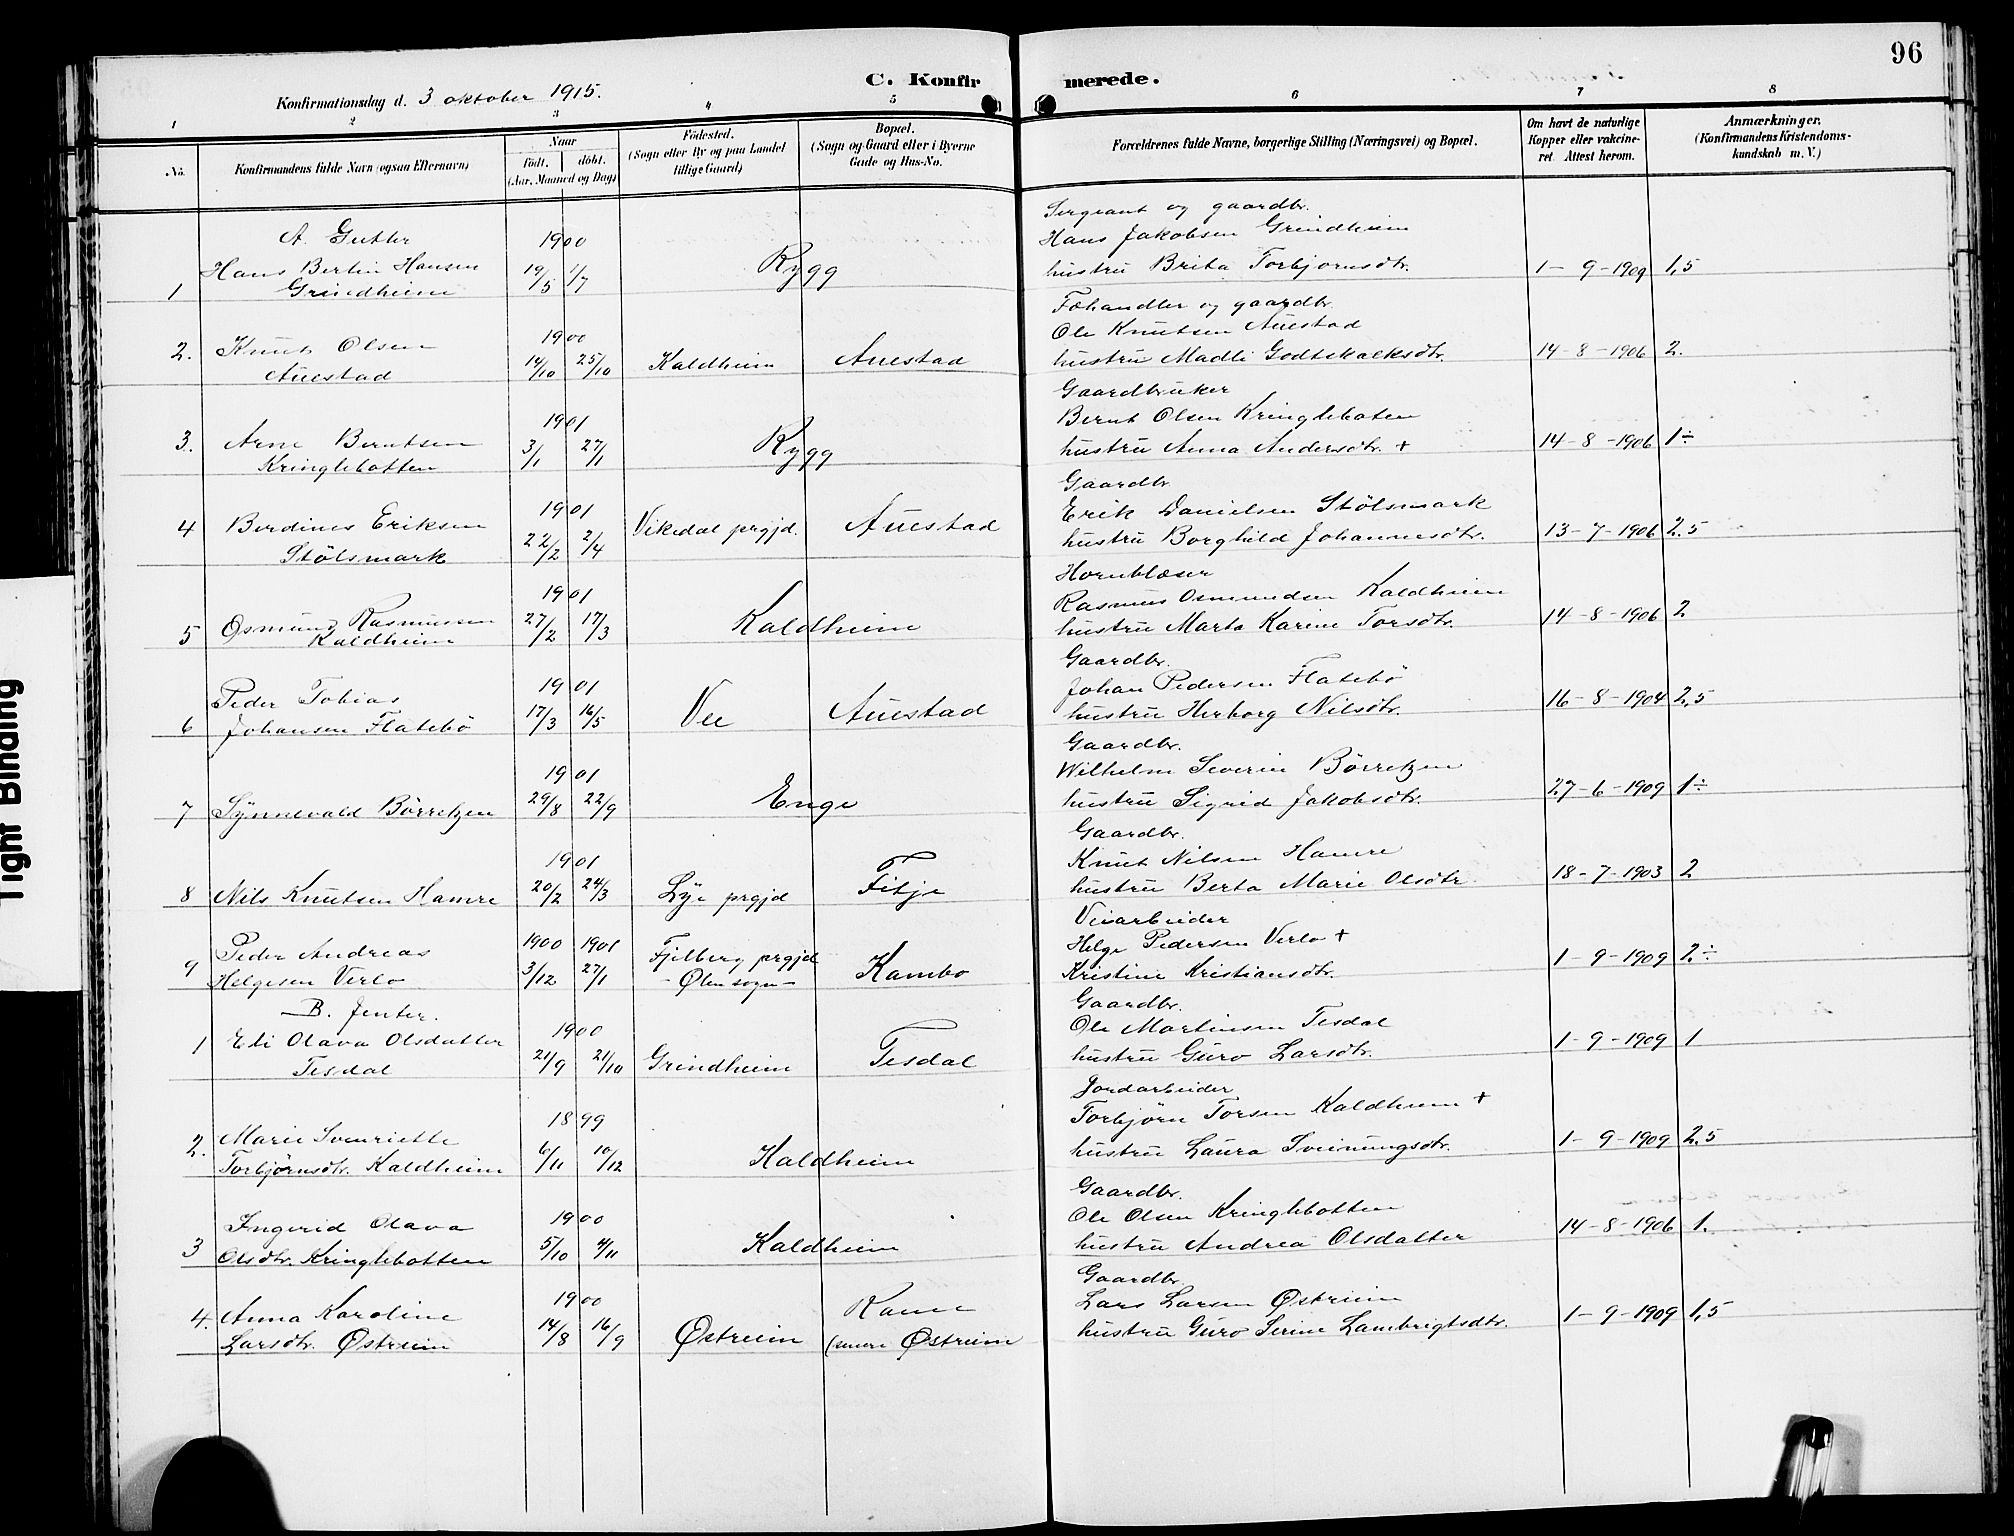 96
C. Konfirmerede.
Konfirmationsdag d. 3 oktober 1915.
1 2 3 4 5 6 7 8
No.
Konfirmandens fulde Navn (ogsaa Efternavn)
Naar
født. døbt.
(Aar, Maaned og Dag)
Fødested.
(Sogn eller By og paa Landet
tillige Gaard)
Bopæl.
(Sogn og Gaard eller i Byerne
Gade og Hus-No.
Forældrenes fulde Navne, borgerlige Stilling (Næringsvei) og Bopæl.
Om havt de naturlige
Kopper eller vakcine-
ret. Attest herom.
Anmærkninger.
(Konfirmandens Kristendoms-
kundskab m. V.)
A. Gutter
1 Hans Bertin Hansen
Grindheim
1900
19/5 1/7
Rygg
Sergeant og gaardbr.
Hans Jakobsen Grindheim
hustru Brita Torbjørnsdtr.
1-9-1909 1,5
2. Knut Olsen
Auestad
1900
14/10 25/10
Kaldheim
Auestad
Fæhandler og gaardbr.
Ole Knutsen Auestad
hustru Madli Godtskalksdtr.
14-8-1906 2.
3. Arne Berntsen
Kringlebotten
1901
3/1 27/1
Rygg
Gaardbruker
Bernt Olsen Kringleboten
hustru Anna Andersdtr. +
14-8-1906 1÷
4 Berdines Eriksen
Stölsmark
1901
22/2 2/4
Vikedal prgjd.
Auestad
Gaardbr.
Erik Danielsen Stölsmark
hustru Borghild Johannesdtr.
13-7-1906 2.5
5 Osmund Rasmussen
Kaldheim
1901
27/2 17/3
Kaldheim
Hornblæser
Rasmus Osmundsen Kaldheim
hustru Marta Karine Torsdtr.
14-8-1906 2
6 Peder Tobias
Johansen Flatebö
1901
17/3 16/5
Vee
Auestad
Gaardbr.
Johan Pedersen Flatebö
hustru Herborg Nilsdtr.
16-8-1904 2,5
7 Synnevald Börretzen
1901
29/8 22/9
Enge
Gaardbr.
Wilhelm Severin Börretzen
hustru Sigrid Jakobsdtr.
27-6-1909 1÷
8 Nils Knutsen Hamre
1901
20/2 24/3
Lye prgjd
Fitje
Gaardbr.
Knut Nilsen Hamre
hustru Berta Marie Olsdtr
18-7-1903 2
9 Peder Andreas
Helgesen Verlo
1900 1901
3/12 27/1
Fjelberg prgjd
- Ølen sogn -
Kambo
Veiarbeider
Helge Pedersen Verlo +
Kristine Kristiansdtr.
1-9-1909 2.÷
B. Jenter.
1 Eli Olava Olsdatter
Tesdal
1900
21/9 21/10
Grindheim
Tesdal
Gaardbr.
Ole Martinsen Tesdal
hustru Guro Larsdtr.
1-9-1909 1
2. Marie Svenriette
Torbjørnsdtr. Kaldheim
1899
6/11 10/12
Kaldheim
Jordarbeider
Torbjörn Torsen Kaldheim +
hustru Laura Sveinungsdtr.
1-9-1909 2,5
3 Ingerid Olava
Olsdtr. Kringlebotten
1900
5/10 4/11
Kaldheim
Gaardbr.
Ole Olsen Kringlebotten
hustru Andrea Olsdatter
14-8-1906 1.
4. Anna Karoline
Larsdtr. Østreim
1900
14/8 16/9
Østreim
(senere Østreim
Gaardbr.
Lars Larsen Østreim
hustru Guro Serine Lambrigtsdtr.
1-9-1909 1,5
Tight Binding